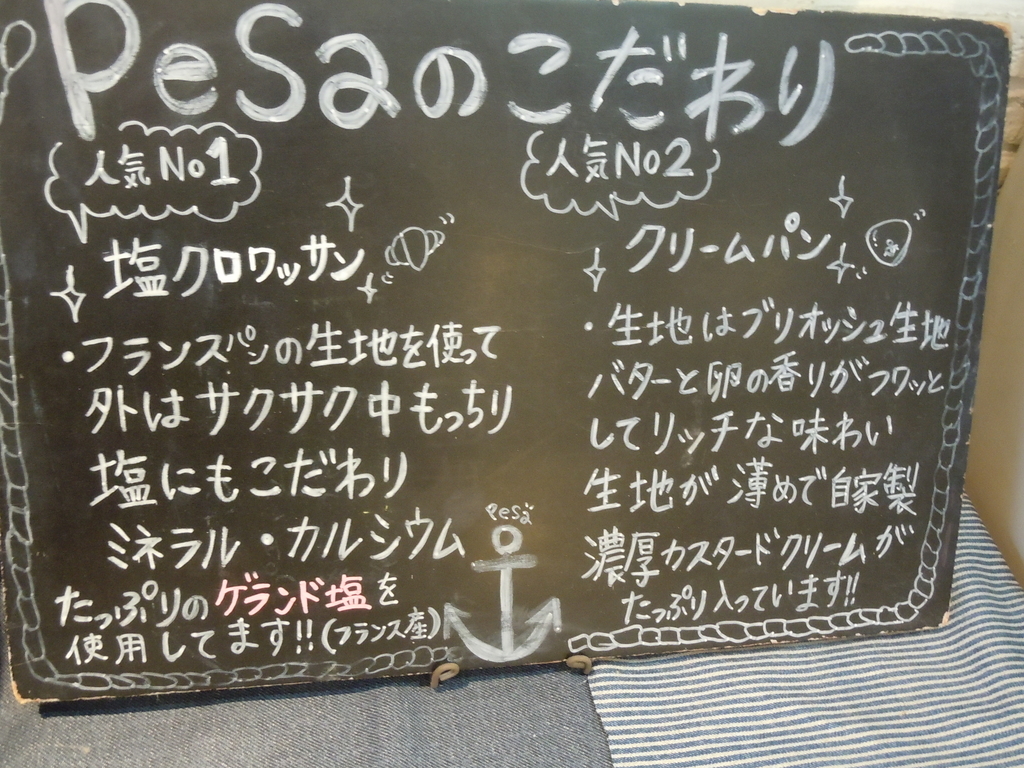 PeSaのこだわり
人気No1
塩クロワッサン
・フランスパンの生地を使って
外はサクサク中もっちり
塩にもこだわり
ミネラル・カルシウム
たっぷりのゲランド塩を
使用してます!!(フランス産)
人気No2
クリームパン
・生地はブリオッシュ生地
バターと卵の香りがフワッと
してリッチな味わい
生地が薄めで自家製
濃厚カスタードクリームが
たっぷり入っています!!
PeSa